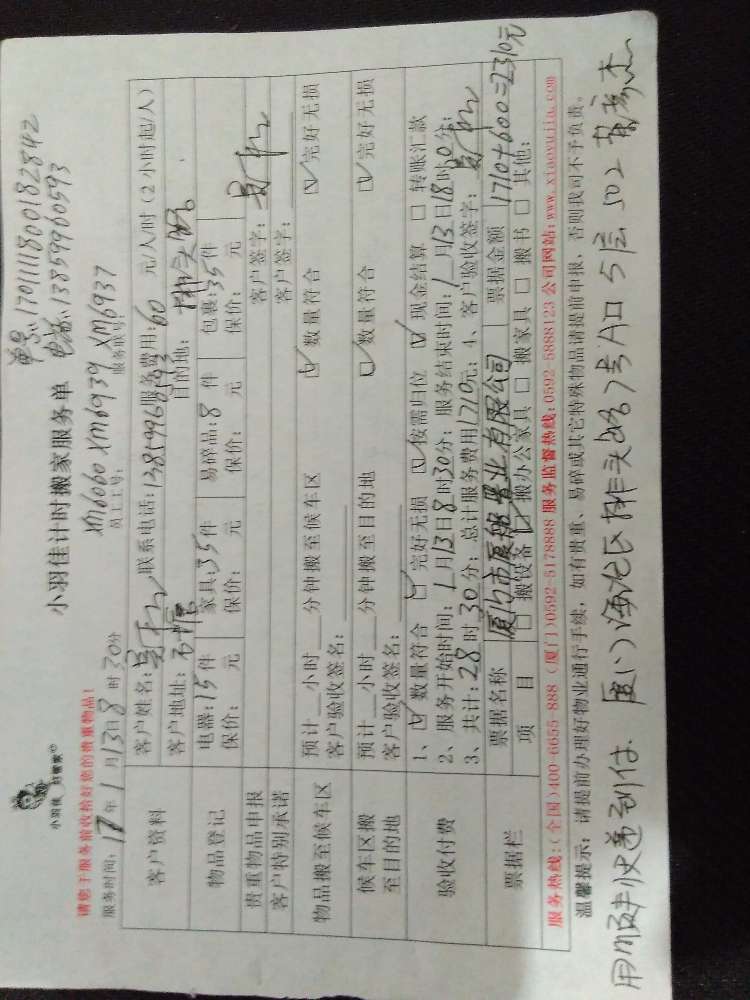 单号:1701111800182842
电话:13859960593
小羽佳 好管家
小羽佳计时搬家服务单
请您于服务前收拾好您的贵重物品!
xm6060 xm6939 xm6937
服务时间: 17年1月13日8时30分 员工工号: 服务联号:
客户资料
客户姓名: 联系电话:13859960593 服务费用:60 元/人/时(2小时起/人)
客户地址: 目的地:
物品登记
电器:15件 家具:35件 易碎品:8件 包裹:35件
保价: 元 保价: 元 保价: 元 保价: 元
贵重物品申报 客户签字:
客户特别承诺 客户签字:
物品搬至候车区
预计__小时__分钟搬至候车区 数量符合 完好无损
客户验收签名:
候车区搬至目的地
预计__小时__分钟搬至目的地 数量符合 完好无损
客户验收签名:
验收付费
1、 数量符合 完好无损 按需归位 现金结算 转账汇款
2、服务开始时间:1月13日8时30分; 服务结束时间:1月13日18时0分;
3、共计:28时30分; 总计服务费用1710元; 4、客户验收签字:
票据栏
票据名称 票据金额 1710+600=2310元
项目 搬设备 搬办公家具 搬家具 搬书 其他:
服务热线:(全国)400-6655-888 (厦门)0592-5178888 服务监督热线:0592-5888123 公司网站:www.xiaoyujia.com
温馨提示: 请提前办理好物业通行手续, 如有贵重、易碎或其它特殊物品请提前申报, 否则我司不予负责。
快递到付. 厦门 7号A口 5层 502